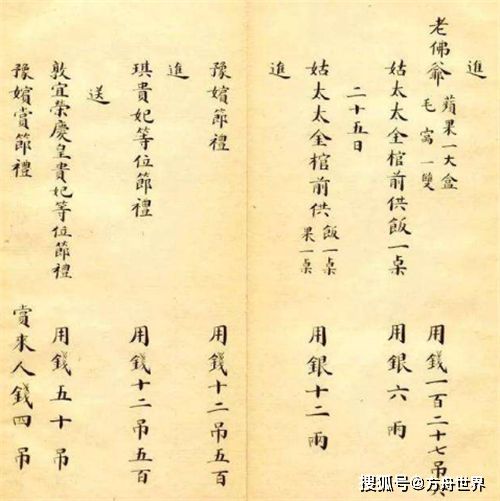 進
老佛爺 蘋果一大盒 毛窩一雙 用錢一百二十七吊
姑太太全棺前供飯一桌 用銀六兩
二十五日
姑太太全棺前供 飯一桌 果一桌 用銀十二兩
進
豫嬪節禮 用錢十二吊五百
進
琪貴妃等位節禮 用錢十二吊五百
送
敦宜榮慶皇貴妃等位節禮 用錢五十吊
豫嬪賞節禮 賞來人錢四吊
搜狐号@方舟世界